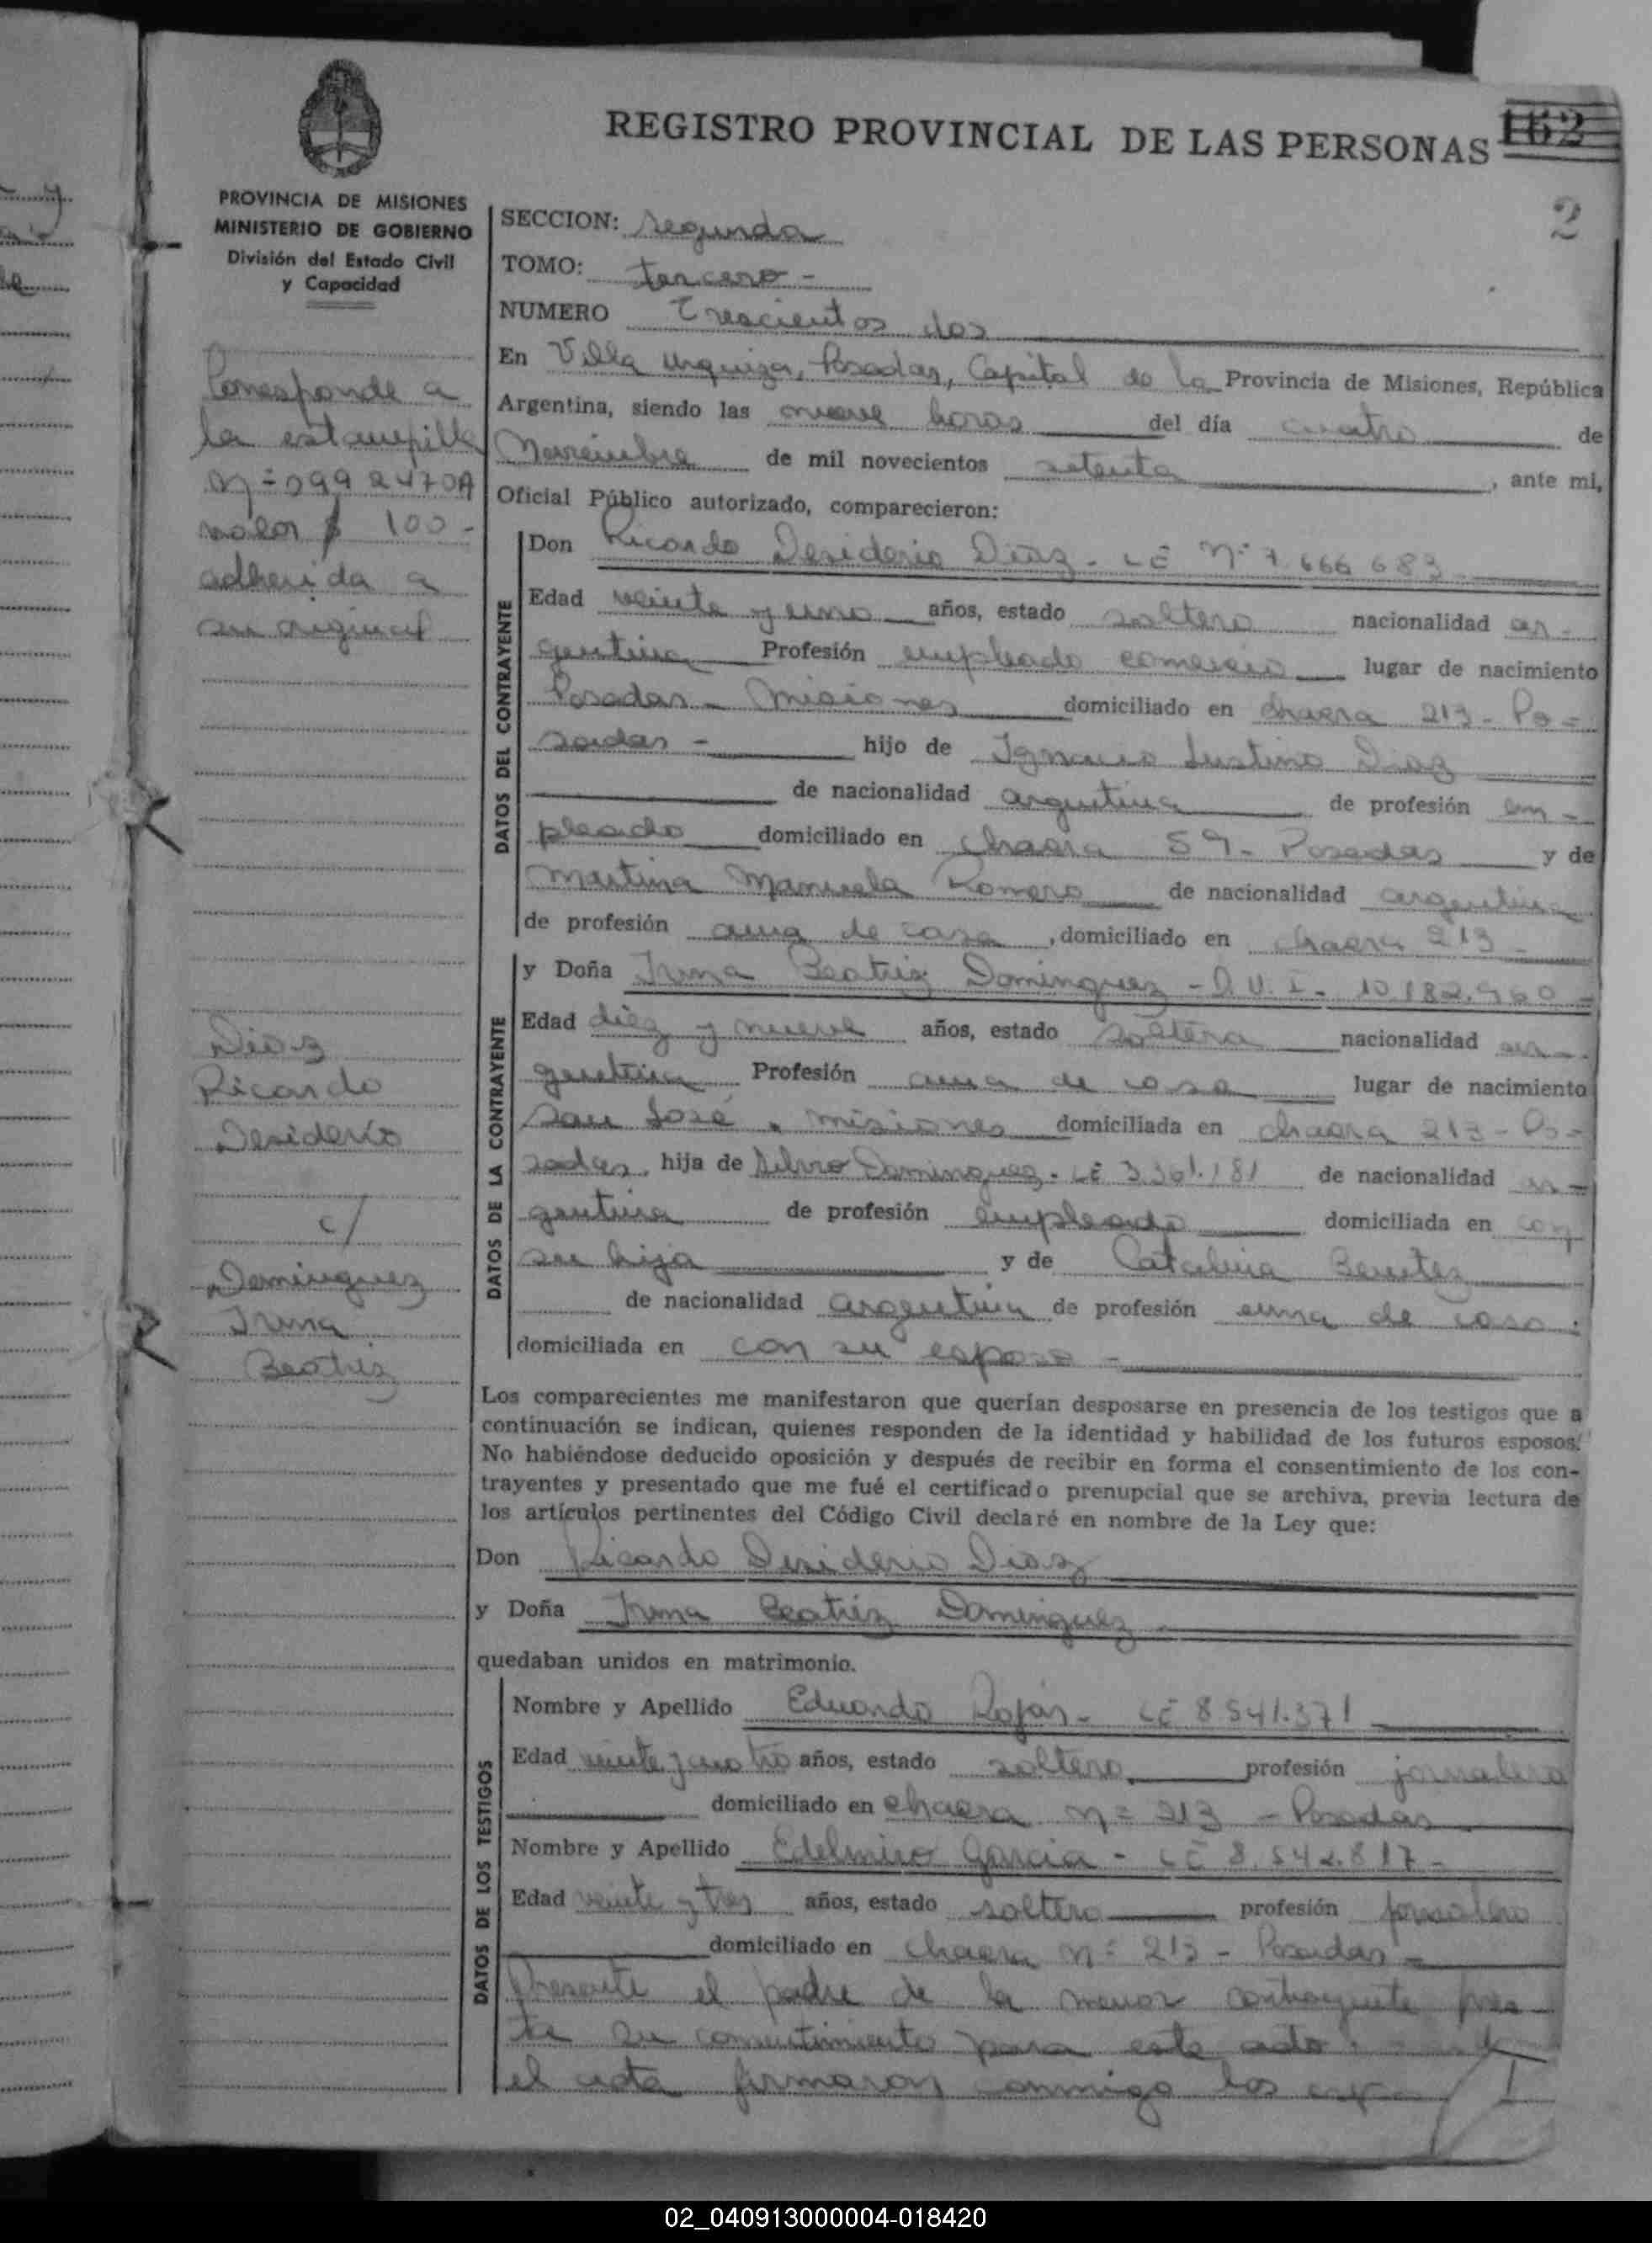 REGISTRO PROVINCIAL DE LAS PERSONAS 162
2
PROVINCIA DE MISIONES
MINISTERIO DE GOBIERNO
División del Estado Civil
y Capacidad
Corresponde a
la estampilla
valor $ 100-
adherida a
su original
Diaz
Ricardo
Desiderio
c/
Dominguez
Irma
Beatriz
SECCION: segunda
TOMO: tercero -
NUMERO Trescientos dos
En Villa Urquiza, Posadas, Capital de la Provincia de Misiones, República
Argentina, siendo las nueve horas del día cuatro de
Noviembre de mil novecientos setenta, ante mi,
Oficial Público autorizado, comparecieron:
DATOS DEL CONTRAYENTE
Don Ricardo Desiderio Diaz - LE Nº 7.666.683
Edad veinte y uno años, estado soltero nacionalidad ar-
gentina Profesión empleado comercio lugar de nacimiento
Posadas - Misiones domiciliado en chacra 213 - Po-
sadas - hijo de Ignacio Justino Diaz
de nacionalidad argentina de profesión em-
pleado domiciliado en chacra 59 - Posadas y de
Martina Manuela Romero de nacionalidad argentina
de profesión ama de casa, domiciliado en chacra 213 -
DATOS DE LA CONTRAYENTE
y Doña Irma Beatriz Dominguez - D.U.I. 10.182.960 -
Edad diez y nueve años, estado soltera nacionalidad ar-
gentina Profesión ama de casa lugar de nacimiento
San José - misiones domiciliada en chacra 213 - Po-
sadas, hija de Dominguez - LE 3.361.181 de nacionalidad ar-
gentina de profesión empleado domiciliada en con
su hija y de Catalina Benitez
de nacionalidad argentina de profesión ama de casa
domiciliada en con su esposo -
Los comparecientes me manifestaron que querían desposarse en presencia de los testigos que a
continuación se indican, quienes responden de la identidad y habilidad de los futuros esposos.
No habiéndose deducido oposición y después de recibir en forma el consentimiento de los con-
trayentes y presentado que me fué el certificado prenupcial que se archiva, previa lectura de
los artículos pertinentes del Código Civil declaré en nombre de la Ley que:
Don Ricardo Desiderio Diaz
y Doña Irma Beatriz Dominguez
quedaban unidos en matrimonio.
DATOS DE LOS TESTIGOS
Nombre y Apellido Eduardo Rojas - LE 8.541.371
Edad veinte y cuatro años, estado soltero profesión jornalero
domiciliado en chacra nº 213 - Posadas
Nombre y Apellido Edelmiro Garcia - LE 8.542.817 -
Edad veinte y tres años, estado soltero profesión jornalero
domiciliado en chacra nº 213 - Posadas -
Presente el padre de la menor contrayente pres-
ta su consentimiento para este acto.
el acta firmaron conmigo los
02_040913000004-018420